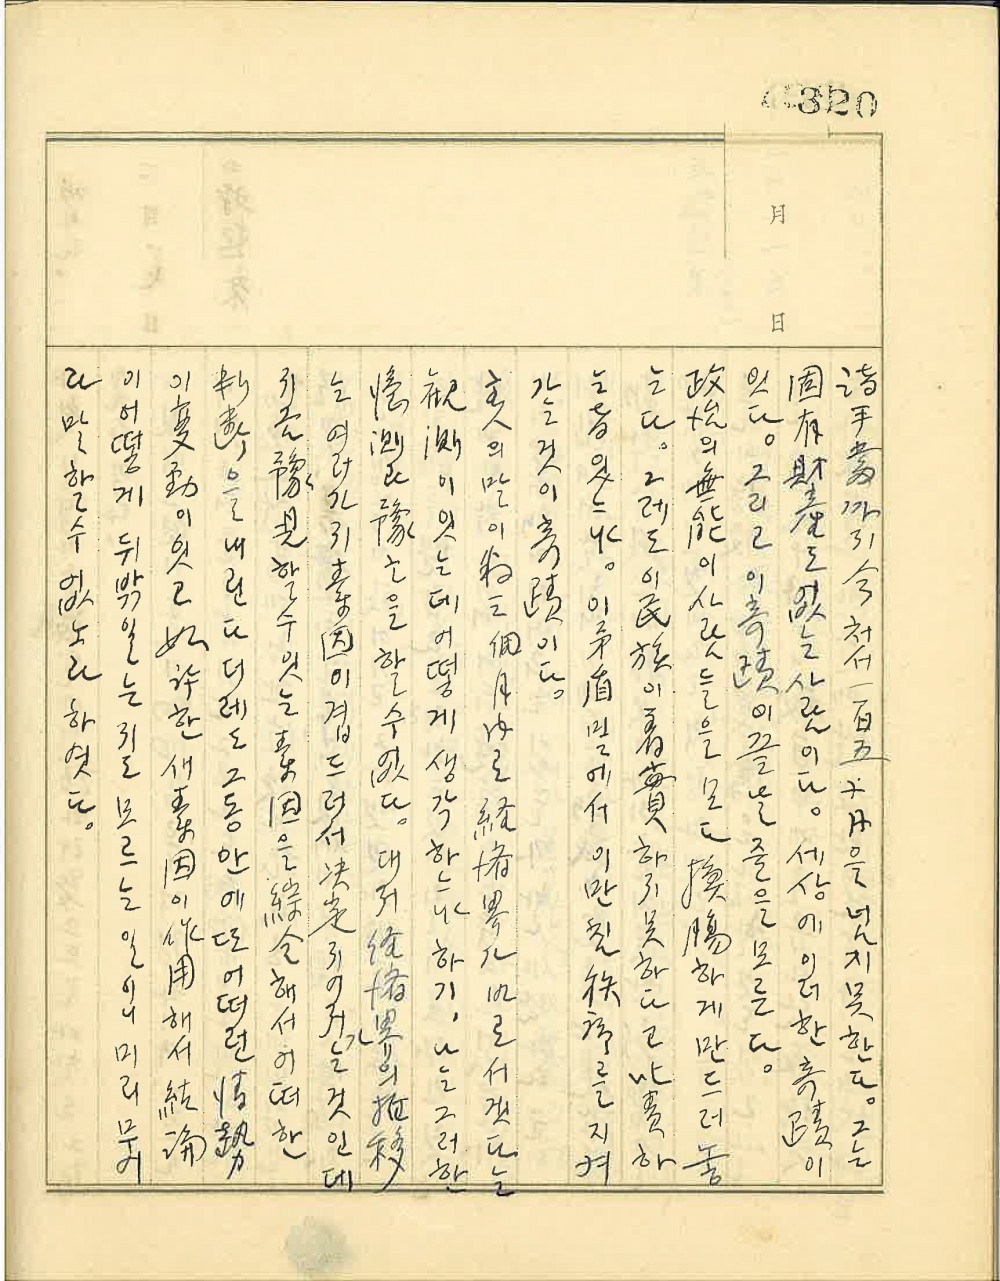 4320
月 日
諸手當까지 今 천서一百五六月을 넘지 못한다. 그는
固有財産도 없는 사람이다. 세상에 이러한 奇蹟이
잇다. 그리고 이 奇蹟이 끝날 줄을 모른다.
政治의 無能이 사람들을 모다 換腸하게 만드러 놓
는다. 그레도 이 民族이 着實하지 못하다고 나
는 者 잇느냐. 이 矛盾 밑에서 이만침 秩序를 지켜
가는 것이 奇蹟이다.
美人의 말이 約三個月內로 経済界가 바로서겟다는
観測이 잇는데 어떻게 생각하느냐 하기, 나는 그러한
憶測과 豫言을 할 수 없다. 대저 経済界의 推移
는 여러가지 素因이 겹드러서 決定지어저가는 것인데
지금 豫見할 수 잇는 素因을 綜合해서 어떠한
判断을 내린다 더레도 그동안에 또 어떠런 情勢
이 変動이 잇고 如許한 새 素因이 作用해서 結論
이 어떻게 뒤밖일는지도 모르는 일이니 미리 무어
라 말할 수 없노라 하엿다.